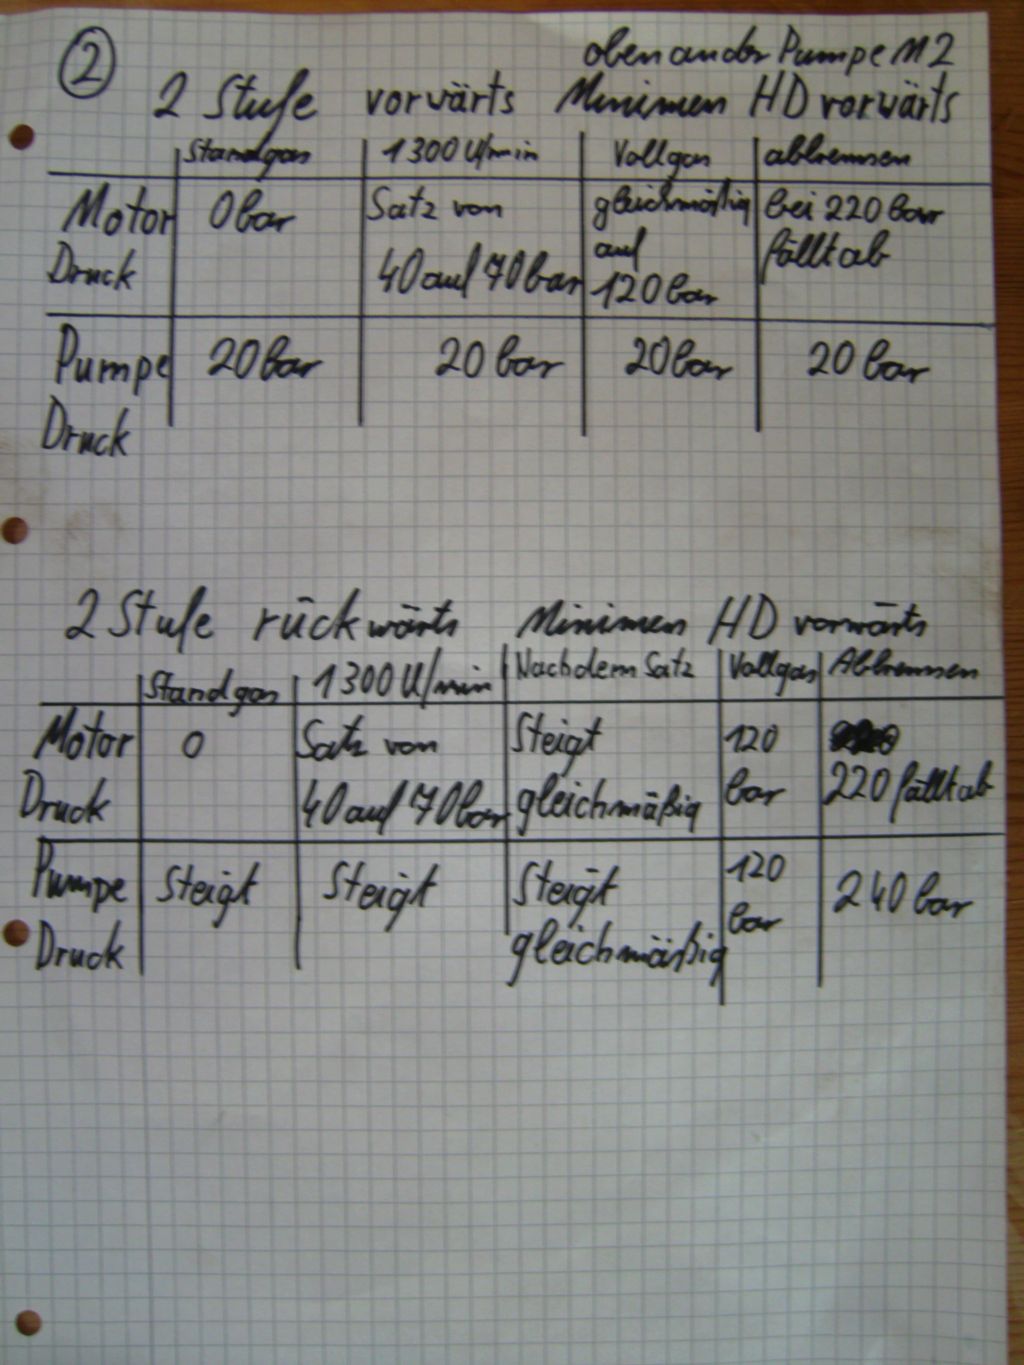 ②
oben an der Pumpe M2
2 Stufe vorwärts Minimen HD vorwärts
Standgas 1300 U/min Vollgas abbremsen
Motor 0 bar Satz von gleichmäßig bei 220 bar
Druck 40 auf 70 bar auf fällt ab
120 bar
Pumpe 20 bar 20 bar 20 bar 20 bar
Druck
2 Stufe rückwärts Minimen HD vorwärts
Standgas 1300 U/min Nachdem Satz Vollgas Abbremsen
Motor 0 Satz von Steigt 120
Druck 40 auf 70 bar gleichmäßig bar 220 fällt ab
Pumpe Steigt Steigt Steigt 120 240 bar
Druck gleichmäßig bar